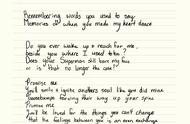 Remembering words you used to say
Memories of when you made my heart dance
Do you ever wake up & reach for me,
beside you where I used to be?
Does your Superman still bear my face
or is that no longer the case?
Promise me
You'll ignite another's soul like you did mine
Goosebumps forcing their way up your spine
Promise me
You'll be loved for the things you can't change
that the feelings between you is an even exchange